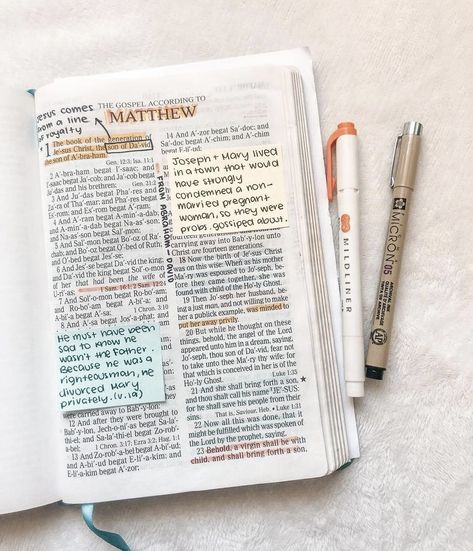 Jesus comes
from a line
of royalty
THE GOSPEL ACCORDING TO
MATTHEW
1 The book of the generation of
Je'-sus Christ, the son of Da'-vid,
the son of A'-bra-ham.
Gen. 12:3; Isa. 11:1
2 A'-bra-ham begat I'-saac; and
I'-saac begat Ja'-cob; and Ja'-cob begat
Ju'-das and his brethren;
3 And Ju'-das begat Pha'-res and
Za'-ra of Tha'-mar; and Pha'-res begat
Es'-rom; and Es'-rom begat A'-ram;
4 And A'-ram begat A-min'-a-dab;
and A-min'-a-dab begat Na-as'-son;
and Na-as'-son begat Sal'-mon;
5 And Sal'-mon begat Bo'-oz of Ra'-
chab; and Bo'-oz begat O'-bed of Ruth;
and O'-bed begat Jes'-se;
6 And Jes'-se begat Da'-vid the king;
and Da'-vid the king begat Sol'-o-mon
of her that had been the wife of
1 Sam. 16:1; 2 Sam. 12:24
7 And Sol'-o-mon begat Ro-bo'-am;
and Ro-bo'-am begat A-bi'-a; and
A-bi'-a begat A'-sa;
8 And A'-sa begat Jos'-a-phat; and
FROM ABRAHAM DAVID
He must have been
sad to know he
wasn't the Father.
Because he was a
righteous man, he
divorced Mary
privately. (v.19)
were carried away to Bab'-y-lon:
12 And after they were brought to
Bab'-y-lon, Jech-o-ni'-as begat Sa-la'-
thi-el; and Sa-la'-thi-el begat Zo-rob'-a-
bel;
1 Chron. 3:17; Ezra 3:2; Hag. 1:1
13 And Zo-rob'-a-bel begat A-bi'-ud;
and A-bi'-ud begat E-li'-a-kim; and
E-li'-a-kim begat A'-zor;
14 And A'-zor begat Sa'-doc; and
Sa'-doc begat A'-chim; and A'-chim
begat E-li'-ud;
Joseph + Mary lived
in a town that would
have strongly
condemned a non-
married pregnant
woman, so they were
probs. gossiped about.
carrying away into Bab'-y-lon unto
Christ are fourteen generations.
18 Now the birth of Je'-sus Christ
was on this wise: When as his mother
Ma'-ry was espoused to Jo'-seph, be-
fore they came together, she was
found with child of the Holy Ghost.
19 Then Jo'-seph her husband, be-
ing a just man, and not willing to make
her a publick example, was minded to
put her away privily.
20 But while he thought on these
things, behold, the angel of the Lord
appeared unto him in a dream, saying,
Jo'-seph, thou son of Da'-vid, fear not
to take unto thee Ma'-ry thy wife: for
that which is conceived in her is of the
Ho'-ly Ghost.
Luke 1:35
21 And she shall bring forth a son,
and thou shalt call his name JE'-SUS:
for he shall save his people from their
sins.
That is, Saviour, Heb. • Luke 1:31
22 Now all this was done, that it
might be fulfilled which was spoken of
the Lord by the prophet, saying,
23 Behold, a virgin shall be with
child, and shall bring forth a son,
MILDLINER
MICRON 05